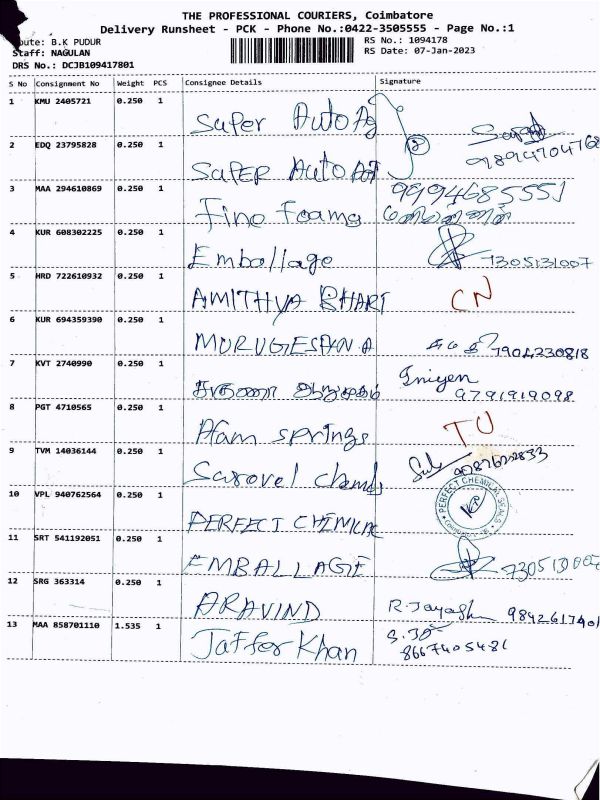 THE PROFESSIONAL COURIERS, Coimbatore
Delivery Runsheet - PCK - Phone No.:0422-3505555 - Page No.:1
oute: B.K PUDUR
RS No.: 1094178
Staff: NAGULAN
RS Date: 07-Jan-2023
DRS No.: DCJB109417801
S No Consignment No Weight PCS Consignee Details Signature
1 KMU 2405721 0.250 1 Super Auto Ag
2 EDQ 23795828 0.250 1 SUPER AUTO 9894704768
3 MAA 294610869 0.250 1 Fine Foams 9994685551
4 KUR 608302225 0.250 1 Emballage 7305131007
5 HRD 722610932 0.250 1 AMITHYA BHARI CN
6 KUR 694359390 0.250 1 MURUGESAN A 7904230818
7 KVT 2740990 0.250 1 Iniyen
9791919098
8 PGT 4710565 0.250 1 Afam springs TU
9 TVM 14036144 0.250 1 Sarovel Chemds
10 VPL 940762564 0.250 1 PERFECT CHEMICAL PERFECT CHEMICAL SEALS
11 SRT 541192051 0.250 1 EMBALLAGE
12 SRG 363314 0.250 1 ARAVIND R. Jayagh 9842617401
13 MAA 858701110 1.535 1 Jaffer Khan 8667405481